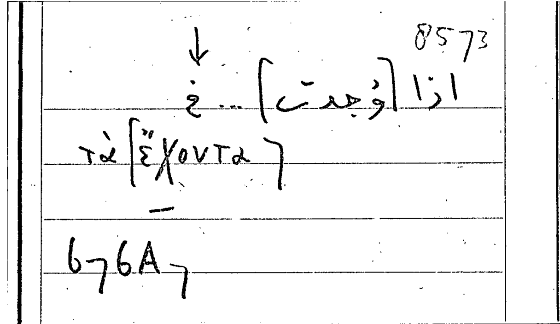 8573
↓
اذا [وُجدت] ... في
τὰ [ἔχοντα]
6,6A,